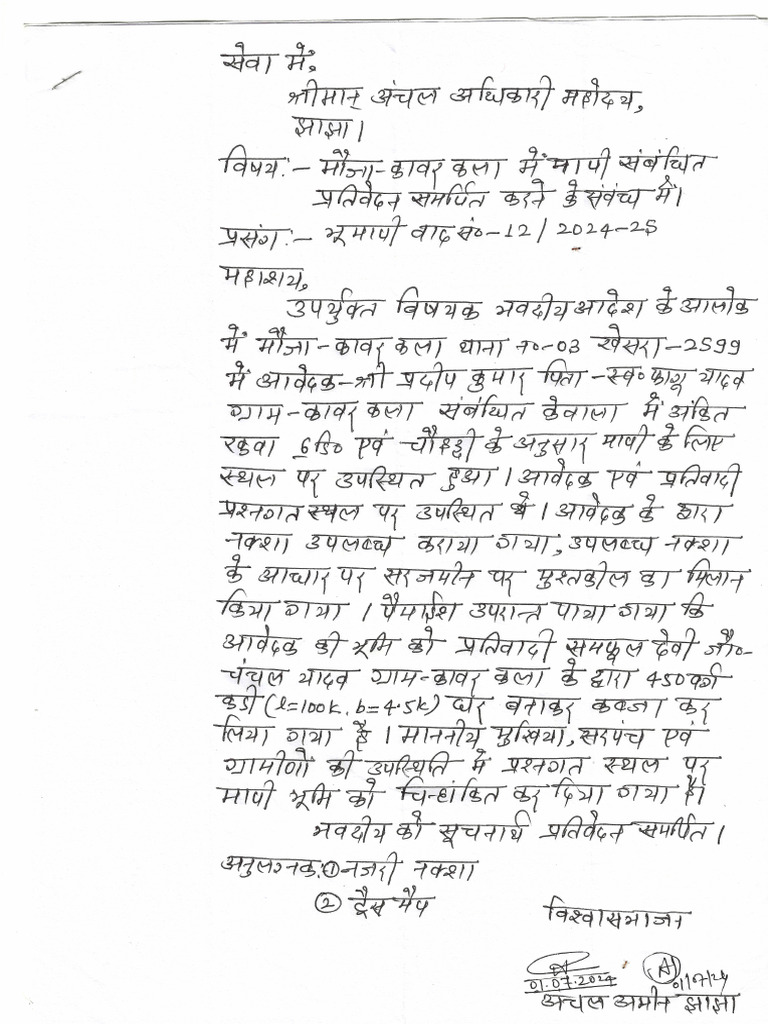 सेवा में,
श्रीमान् अंचल अधिकारी महोदय,
झाझा।
विषय:- मौजा-कावर कला में मापी संबंधित
प्रतिवेदन समर्पित करने के संबंध में।
प्रसंग:- भू मापी वाद सं०-12/2024-25
महाशय,
उपर्युक्त विषयक भवदीय आदेश के आलोक
में मौजा-कावर कला थाना न०-03 खेसरा-2599
में आवेदक-श्री प्रदीप कुमार पिता-स्व० फागू यादव
ग्राम-कावर कला संबंधित केवाला में अंकित
रकवा 6 डि० एवं चौहद्दी के अनुसार मापी के लिए
स्थल पर उपस्थित हुआ। आवेदक एवं प्रतिवादी
प्रश्नगत स्थल पर उपस्थित थे। आवेदक के द्वारा
नक्शा उपलब्ध कराया गया, उपलब्ध नक्शा
के आधार पर सरजमीन पर मुस्तकील का मिलान
किया गया। पैमाईश उपरान्त पाया गया कि
आवेदक की भूमि को प्रतिवादी समफूल देवी जौ०-
चंचल यादव ग्राम-कावर कला के द्वारा 450 वर्ग
कड़ी (l=100k, b=4.5k) घर बनाकर कब्जा कर
लिया गया है। माननीय मुखिया, सरपंच एवं
ग्रामीणों की उपस्थिति में प्रश्नगत स्थल पर
मापी भूमि को चिन्हांकित कर दिया गया है।
भवदीय को सूचनार्थ प्रतिवेदन समर्पित।
अनुलग्नक:① नजरी नक्शा
② ट्रैस मैप
विश्वासभाजन
01.07.2024
01/07/24
अंचल अमीन झाझा